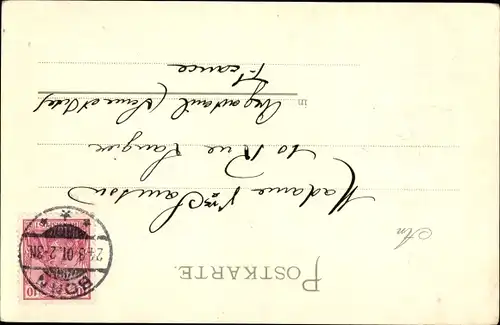 POSTKARTE.
Madame Vve Samson
10 Rue Langier
in Argenteuil (Seine et Oise)
France
BONN
01. 2-3N
10